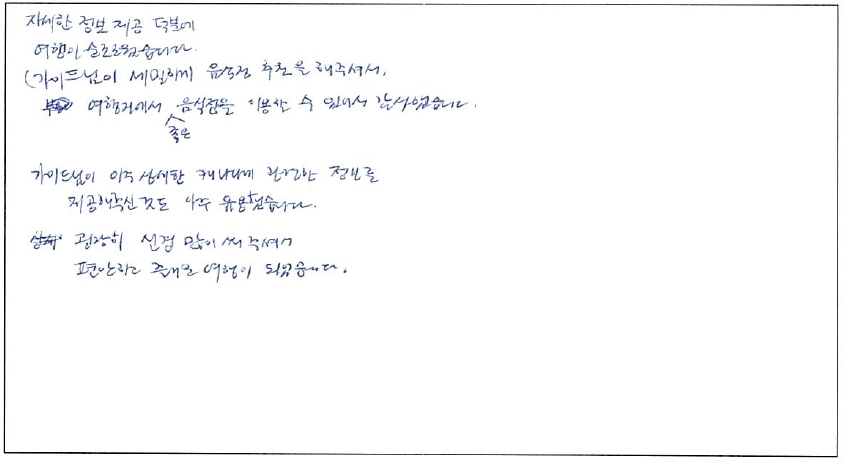 자세한 정보 제공 덕분에
여행이 순조로웠습니다.
(가이드님이 세밀하게 음식점 추천을 해주셔서,
여행지에서 좋은 음식점을 이용할 수 있어서 감사했습니다.
가이드님이 아주 상세한 캐나다에 관련한 정보를
제공해주신 것도 아주 유용했습니다.
굉장히 신경 많이 써 주셔서
편안하고 즐거운 여행이 되었습니다.